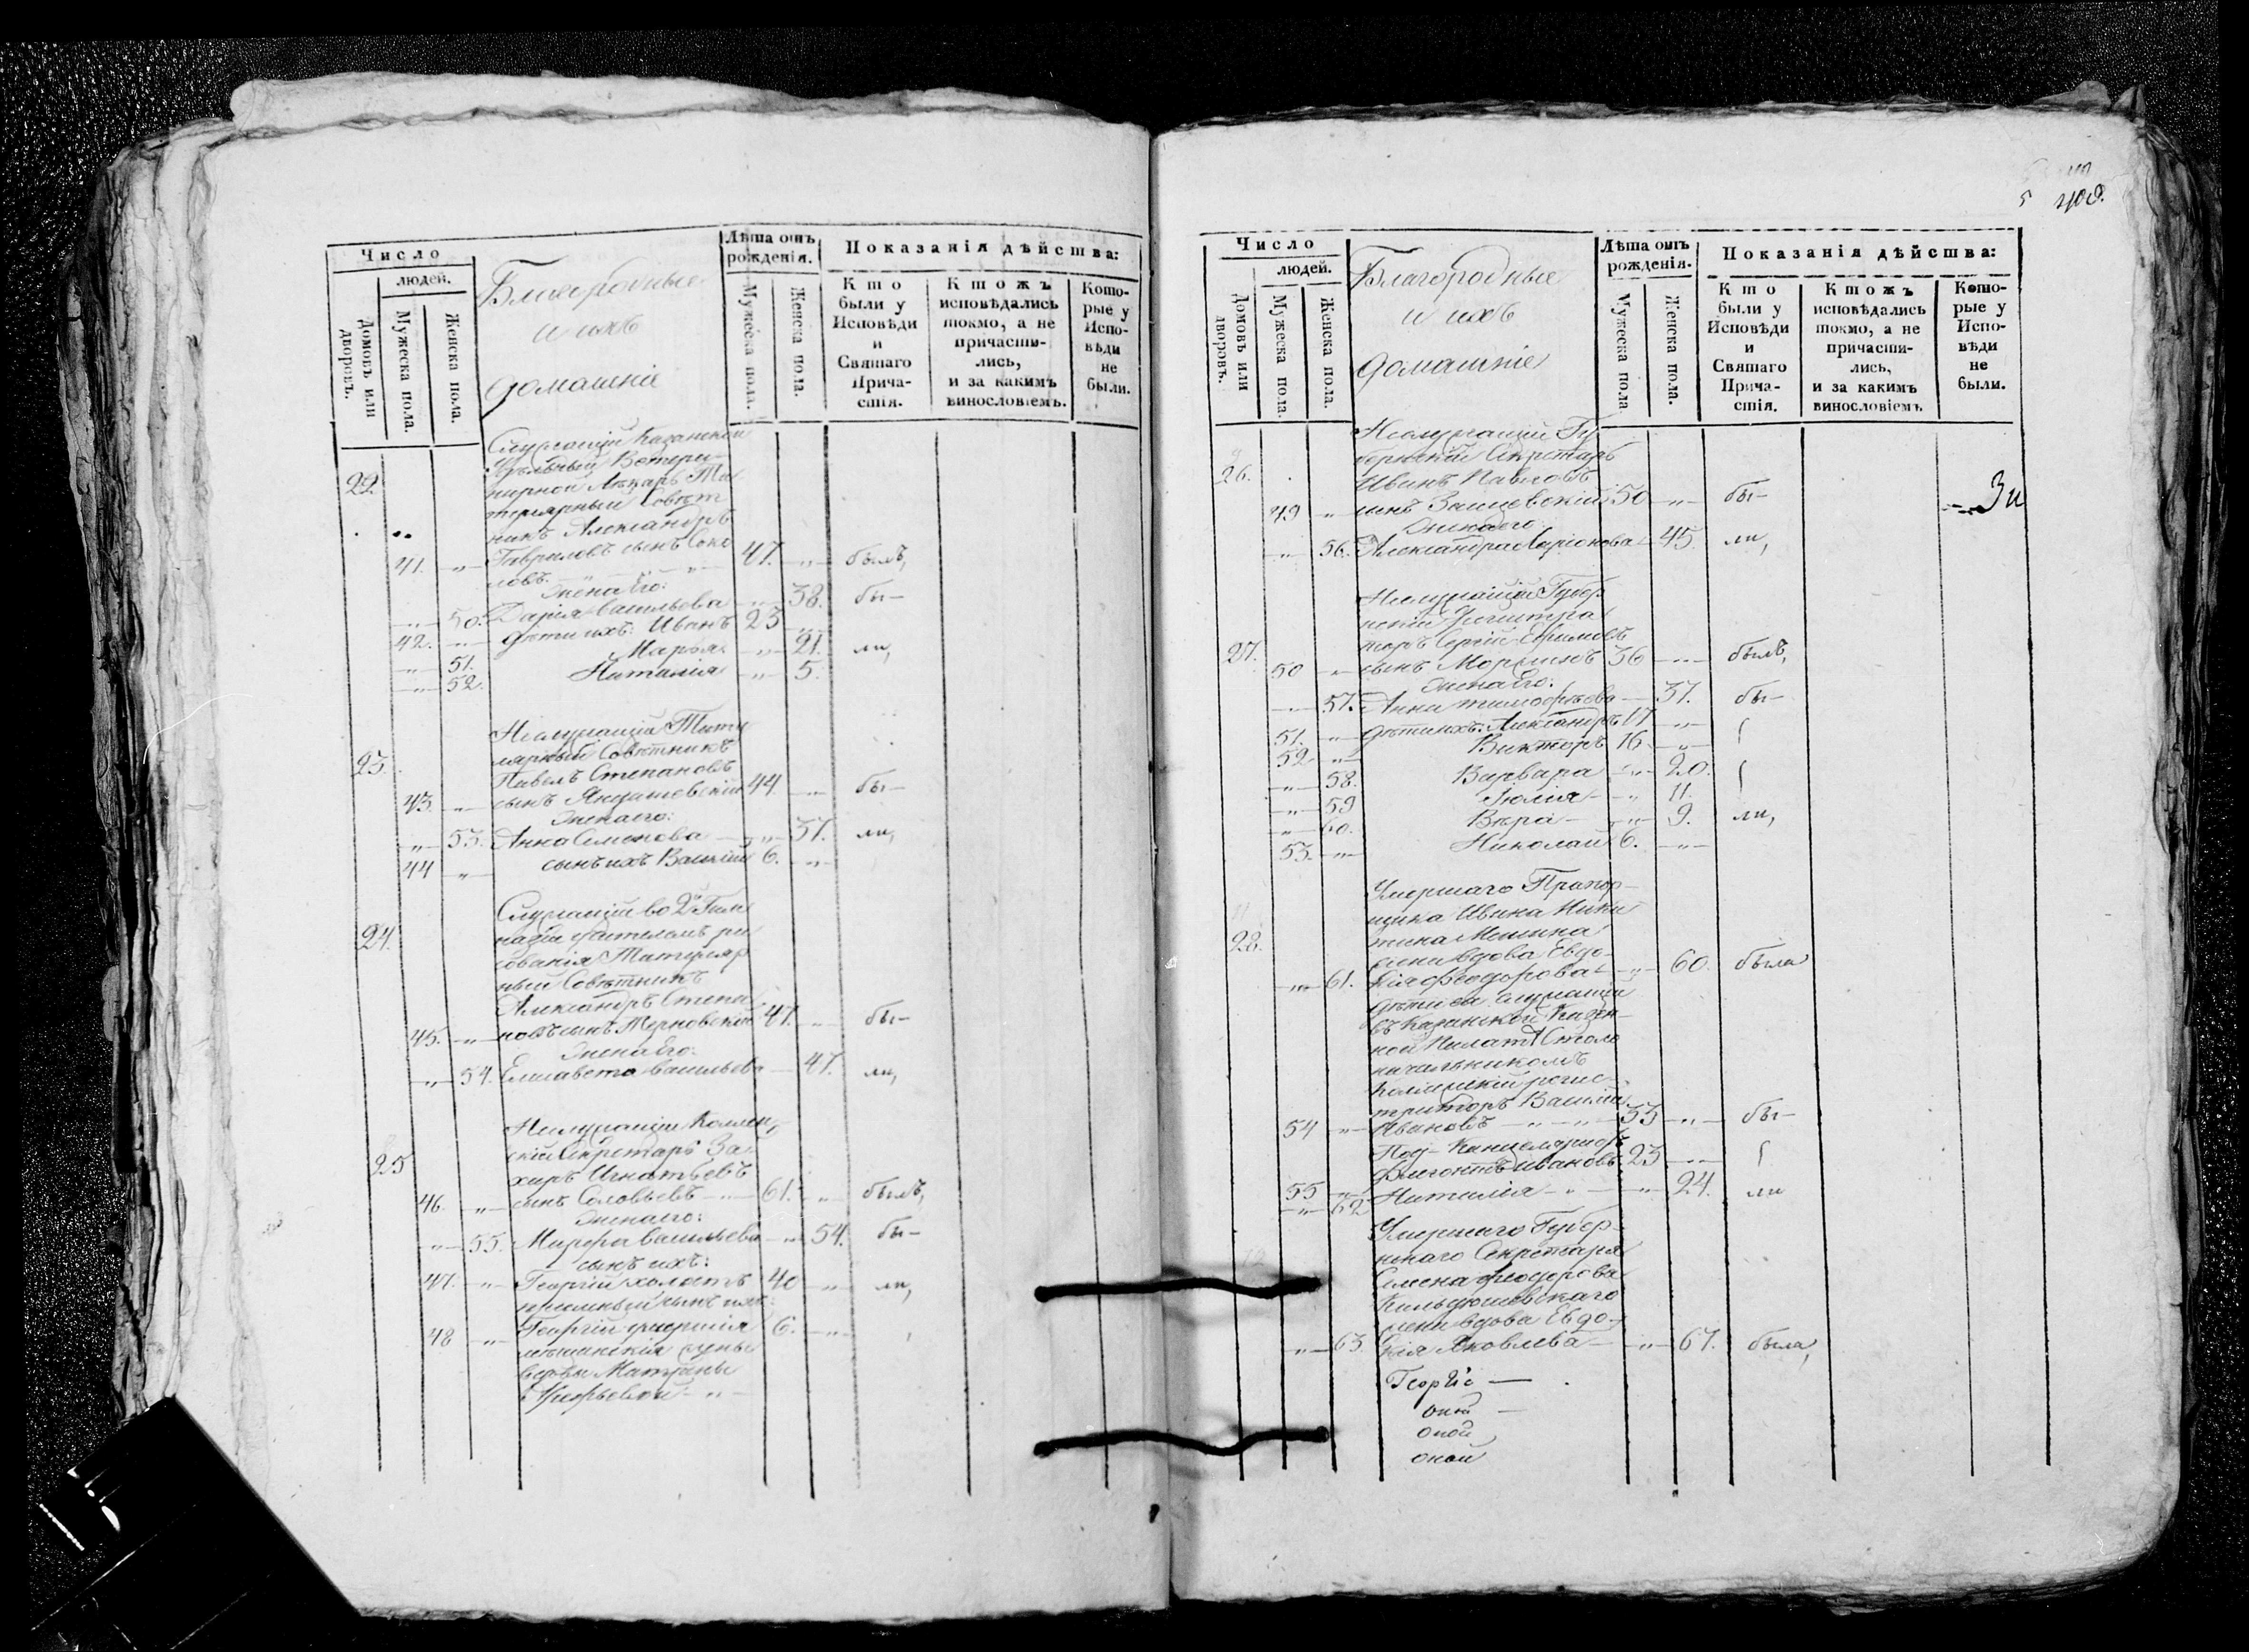 Число
людей.
Домовъ или дворовъ.
Мужеска пола.
Женска пола.
Благородные
и ихъ
домашніе
Лѣта отъ рожденія.
Мужеска пола.
Женска пола.
Показанія дѣйства:
Кто были у Исповѣди и Святаго Причастія.
Ктожъ исповѣдались токмо, а не причастились, и за какимъ винословіемъ.
Которые у Исповѣди не были.
Служащій Казанской
Удѣльный Ветери-
22 нарной Лѣкарь Ти
тулярный Совѣт
никъ Александръ
41. „ Гавриловъ сынъ Соко 47. „ былъ,
ловъ. „ „
Жена его:
„ 50. Дарія Васильева „ 38. бы-
42. „ дѣти ихъ: Иванъ 23 „
„ 51. Марья „ 21. ли,
„ 52. Наталія „ 5.
Неслужащій Титу
23. лярный Совѣтникъ
Павелъ Степановъ
43. „ сынъ 44. „ бы-
Жена его:
„ 53. Анна Семенова „ 37. ли,
44 „ сынъ ихъ Василій 6. „
Служащій во 2й Гим
24. назіи учителемъ ри
сованія Титуляр
ный Совѣтникъ
Александръ Степа
45. „ новъ сынъ Терновскій 47. „ бы-
Жена его:
„ 54. Елисавета Васильева 47. ли,
Неслужащій Коллеж
25 скій Секретарь За
харъ Игнатьевъ
46. „ сынъ Соловьевъ „ 61. „ былъ,
Жена его:
„ 55. Марфа Васильева „ 54. бы-
сынъ ихъ:
47. „ Георгій холостъ 40 „ ли,
пріемный сынъ ихъ:
48 „ Георгій умершія 6. „
мѣщанскія
вдовы Матроны
„
5 409.
Число
людей.
Домовъ или дворовъ.
Мужеска пола.
Женска пола.
Благородные
и ихъ
домашніе
Лѣта отъ рожденія.
Мужеска пола
Женска пола.
Показанія дѣйства:
Кто были у Исповѣди и Святаго Причастія.
Ктожъ исповѣдались токмо, а не причастились, и за какимъ винословіемъ
Которые у Исповѣди не были.
Неслужащій Гу
бернскій Секретарь
26. Иванъ Павловъ
49 „ сынъ 50 „ бы-
Жена его:
„ 56. Александра Ларіонова 45. ли,
Неслужащій Губер
нскій Регистра
27. торъ Сергій Ефимовъ
50 „ сынъ 36 „ былъ,
Жена его:
„ 57. Анна Тимофѣева 37. бы-
51. „ дѣти ихъ: Александръ 17 „
52 „ Викторъ 16 „
„ 58. Варвара „ 20.
„ 59 Юлія „ 11.
„ 60. Вѣра „ 9. ли,
53. „ Николай 6. „
Умершаго Прапор-
щика Ивана Ники
28. тина
жена вдова Евдо-
„ 61. кія Феодорова „ 60. была
дѣти ея служащій
въ Казанской Казен-
ной Палатѣ Столо
начальникомъ
Коллежскій регис-
траторъ Василій
54 „ Ивановъ „ 33 „ бы-
Под-Канцеляристъ
55 „ Флегонтъ Ивановъ 23 „
„ 62 Наталія „ „ 24. ли
Умершаго Губер-
нскаго Секретаря
Семена Феодорова
Кильдюшевскаго
жена вдова Евдо-
„ 63. кія Яковлева „ 67. была,
Георгіе
оной
оной